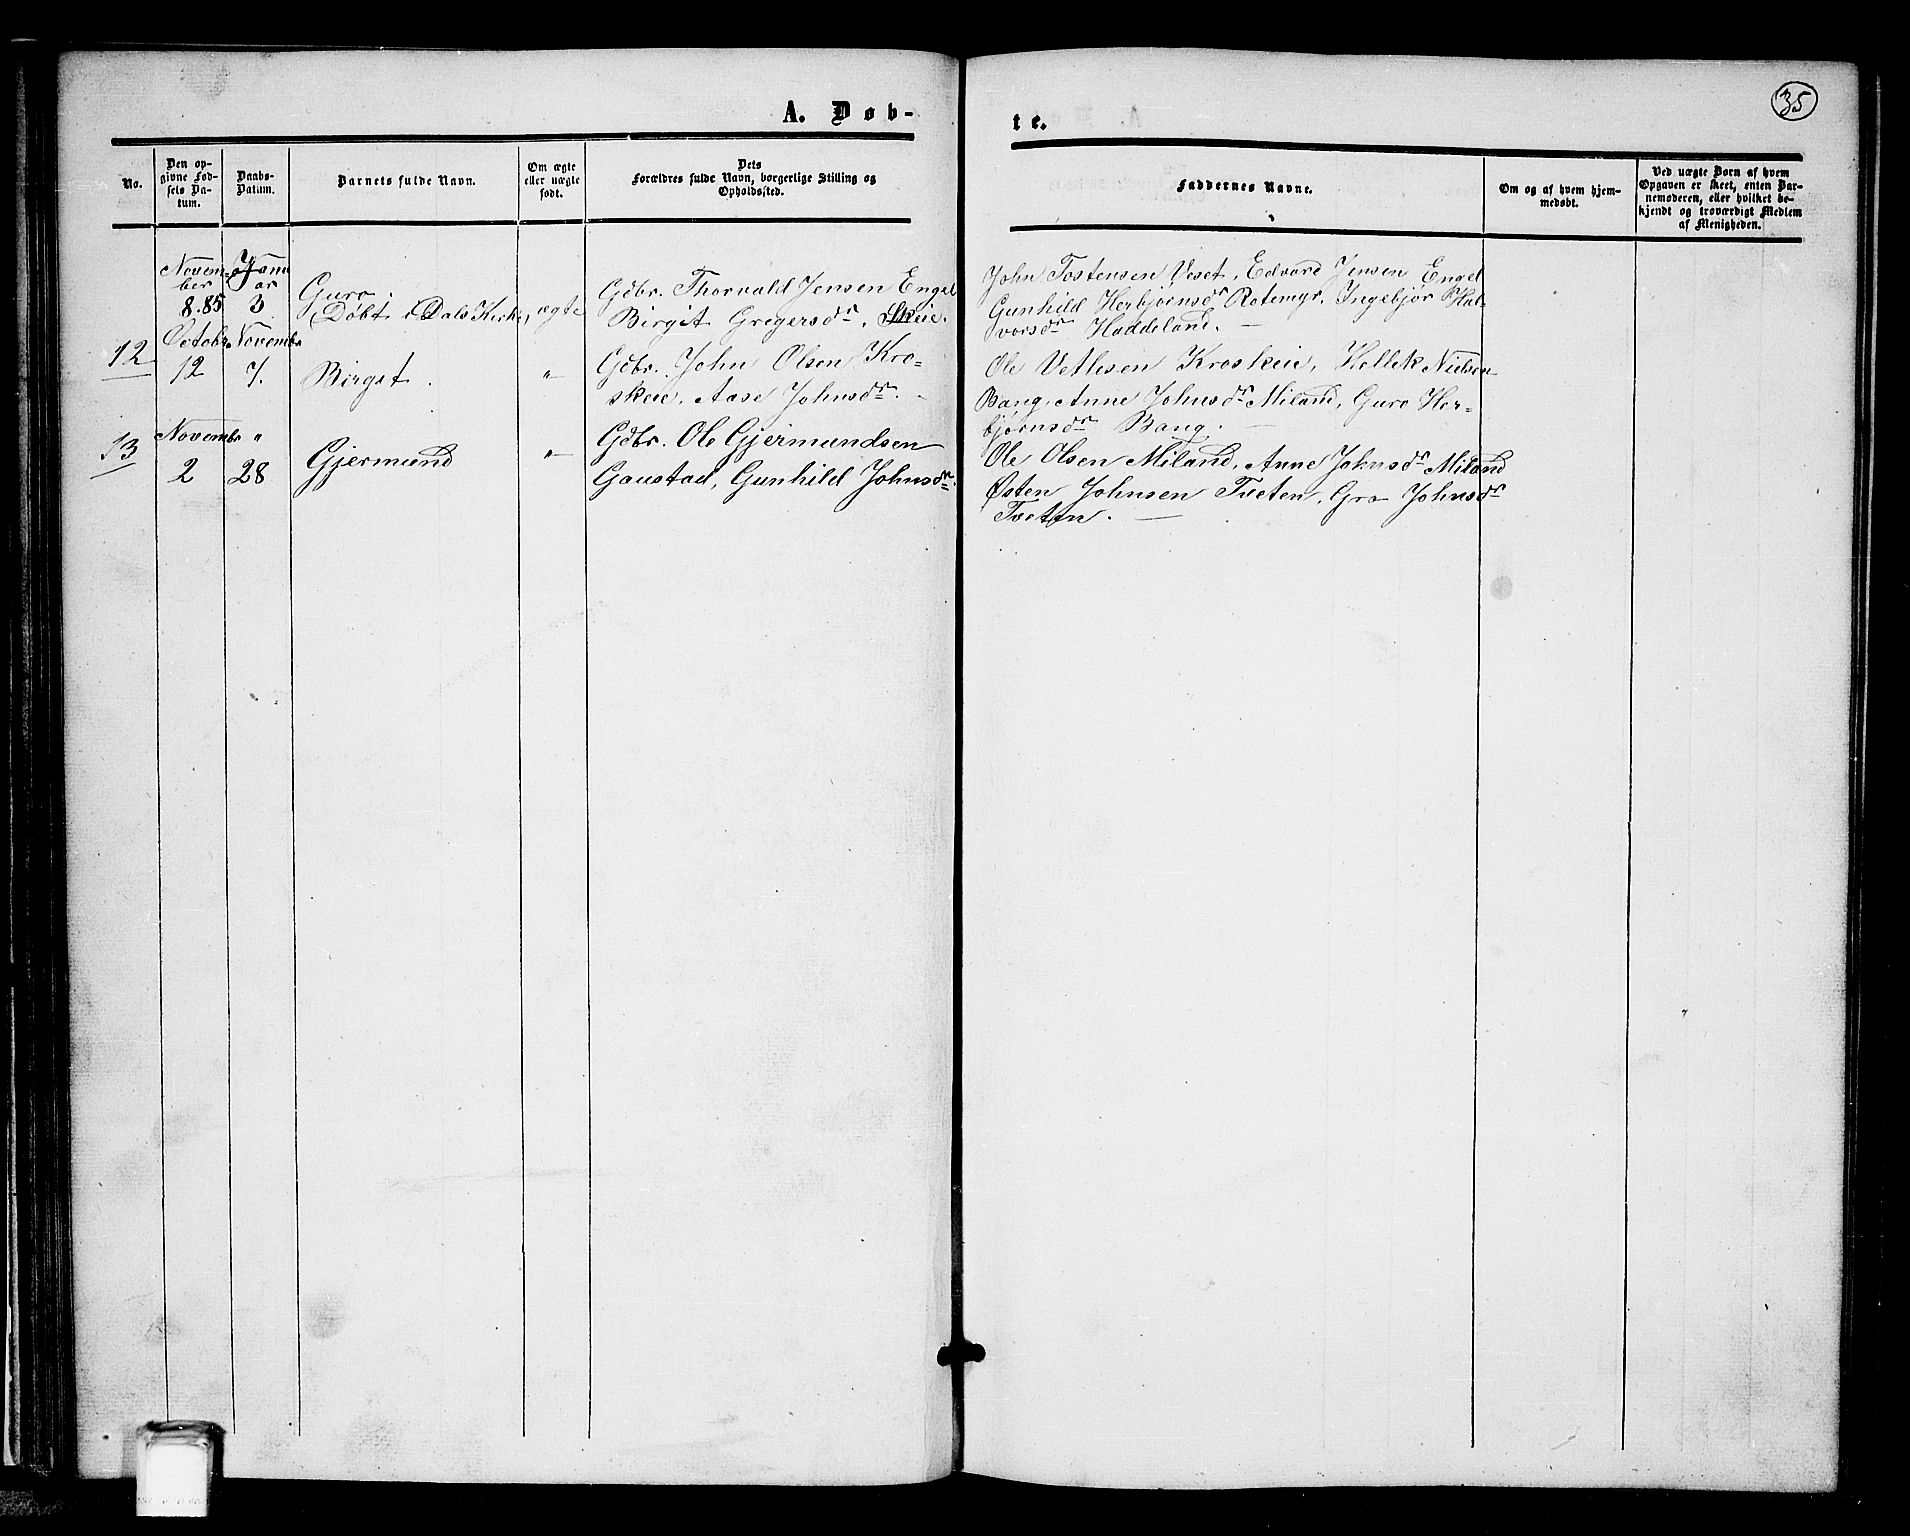 35
A. Døb-
te.
No.
Den op-
givne Fød-
sels Da-
tum.
Daabs-
Datum.
Barnets fulde Navn.
Om ægte
eller uægte
født.
Dets
Forældres fulde Navn, borgerlige Stilling og
Opholdssted.
Faddernes Navne.
Om og af hvem hjem-
medøbt.
Ved uægte Børn af hvem
Opgaven er skeet, enten Bar-
nemoderen, eller hvilket be-
kjendt og troværdigt Medlem
af Menigheden.
Novem-
ber
8.85
Janu
ar
3
Guro
(Døbt i Dals Kirke)
ægte
Gdbr. Thorvald Jensen Engel
Birgit Gregersdr. Skeie.
John Tostensen Veset, Edvard Jensen Engel
Gunhild Herbjørnsdr Rotemyr, Ingebjør Hal-
vorsdr Haddeland.
12
Octobr
12
Novembr
7.
Birgit.
"
Gdbr. John Olsen Kro-
skeie, Aase Johnsdr.
Ole Vetlesen Kroskeie, Hellek Nielsen
Bang, Anne Johnsdr Miland, Guro Her-
bjørnsdr Bang.
13
Novembr
2
"
28
Gjermund
"
Gdbr. Ole Gjermundsen
Gaustad, Gunhild Johnsdr.
Ole Olsen Miland, Anne Johnsdr Miland
Østen Johnsen Tveten, Gro Johnsdr
Tveten.